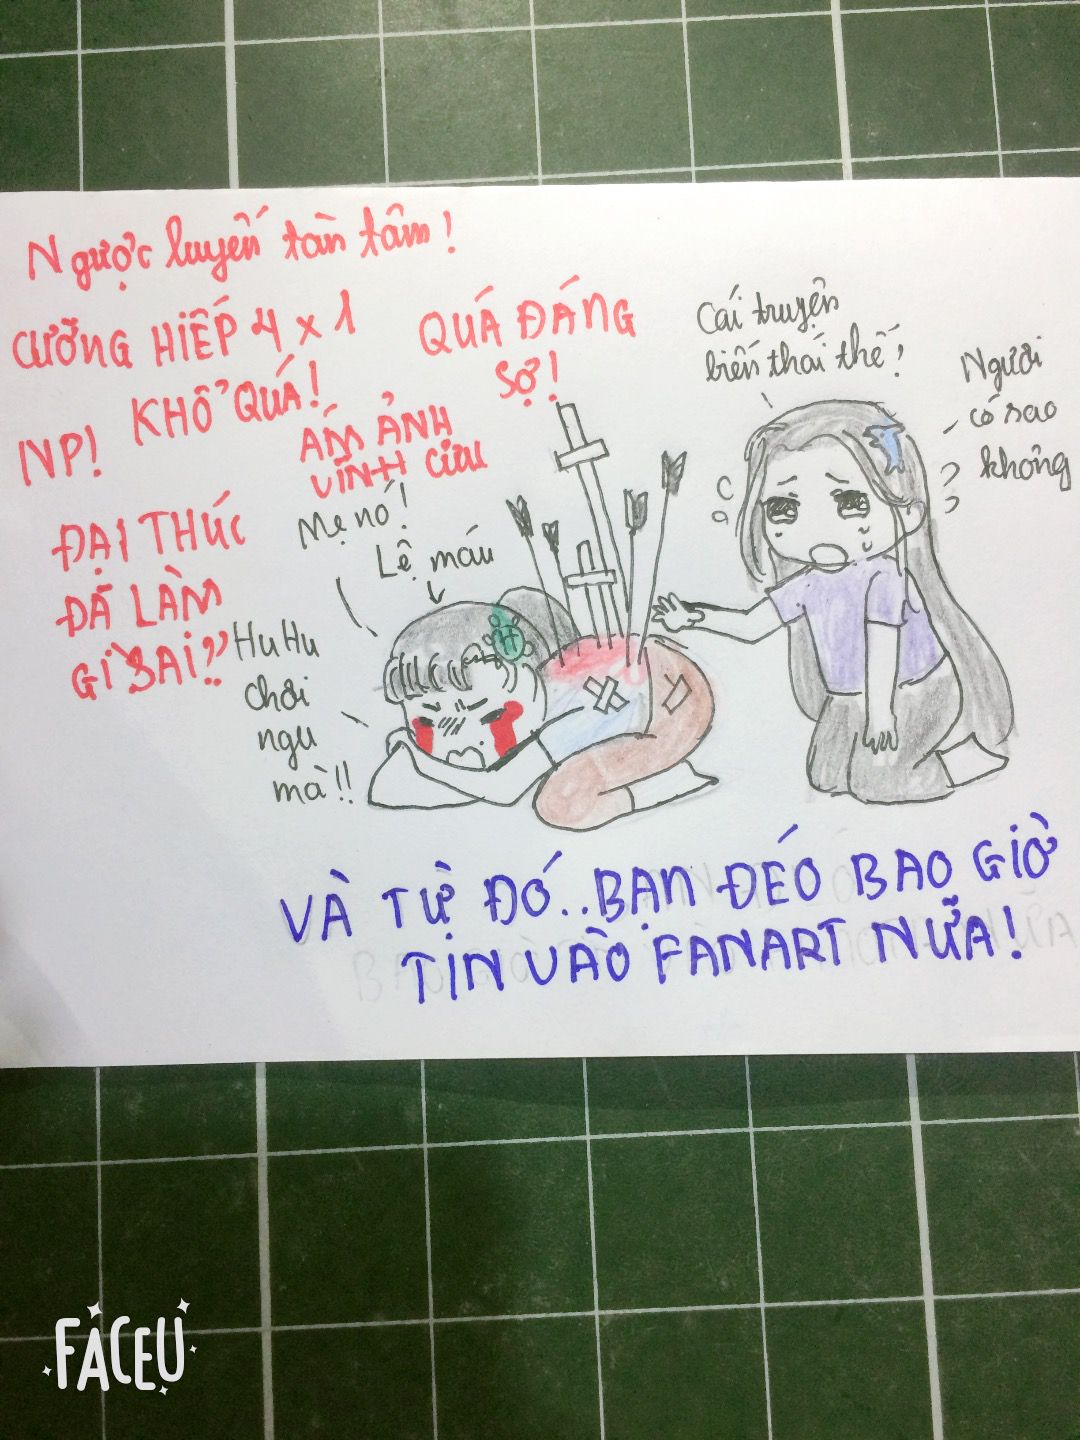 Ngược luyến tàn tâm!
CƯỠNG HIẾP 4 x 1
KHỔ QUÁ!
QUÁ ĐÁNG
SỢ!
NP!
ÁM ẢNH
VĨNH CỬU
ĐẠI THÚC
ĐÃ LÀM
GÌ SAI??
Mẹ nó!
Lệ máu
HuHu
chơi
ngu
mà!!
Cái truyện
biến thái thế!
Ngươi
có sao
không
VÀ TỪ ĐÓ..BẠN ĐÉO BAO GIỜ
TIN VÀO FANART NỮA!
FACEU